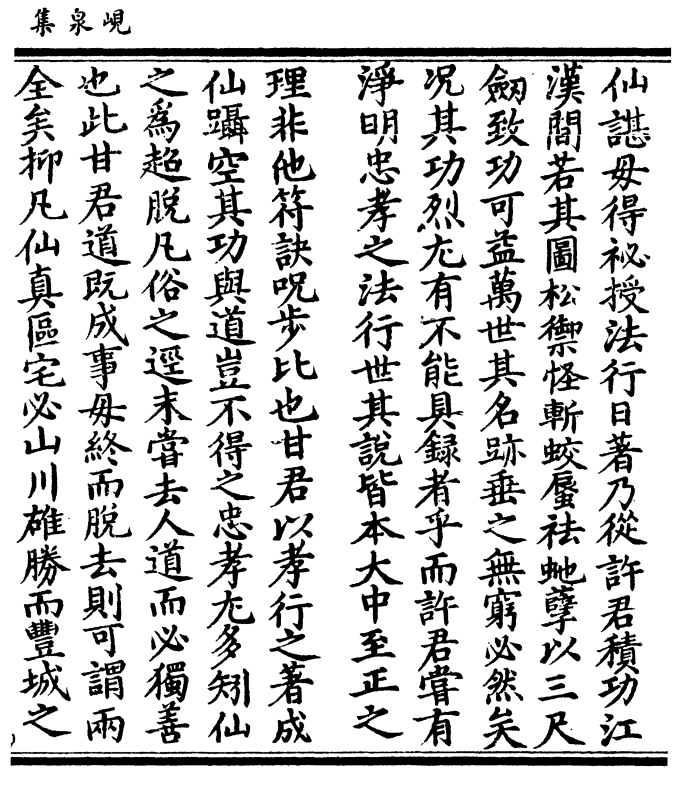 峴泉集
仙諶毋得祕授法行日著乃從許君積功江
漢間若其圖松禦怪斬蛟蜃祛虵孽以三尺
劒致功可益萬世其名跡垂之無窮必然矣
况其功烈尤有不能具録者乎而許君嘗有
淨明忠孝之法行世其說皆本大中至正之
理非他符訣呪步比也甘君以孝行之著成
仙躡空其功與道豈不得之忠孝尤多矧仙
之爲超脫凡俗之逕未嘗去人道而必獨善
也此甘君道既成事毋終而脫去則可謂兩
全矣抑凡仙真區宅必山川雄勝而豐城之